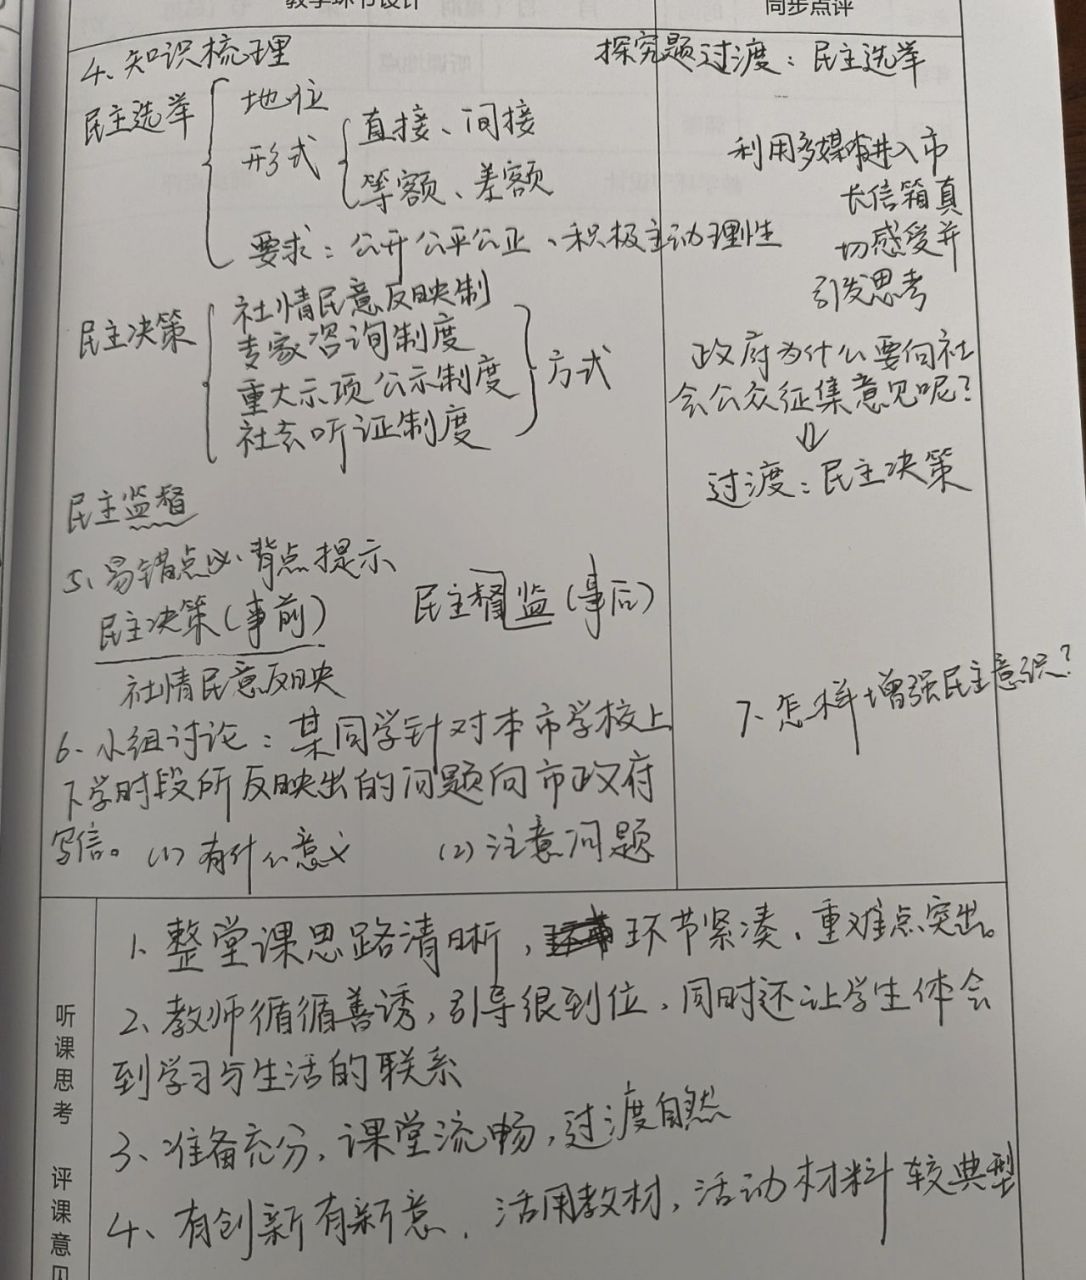 教学环节设计
同步点评
4、知识梳理
民主选举
地位
形式
直接、间接
等额、差额
要求：公开公平公正、积极主动理性
民主决策
社情民意反映制
专家咨询制度
重大示项公示制度
社会听证制度
方式
民主监督
5、易错点必背点提示
民主决策(事前)
民主督监(事后)
社情民意反映
6、小组讨论：某同学针对本市学校上
下学时段所反映出的问题向市政府
写信。(1)有什么意义 (2)注意问题
探究题过渡：民主选举
利用多媒体进入市
长信箱真
切感受并
引发思考
政府为什么要向社
会公众征集意见呢?
⇓
过渡：民主决策
7、怎样增强民主意识?
听课思考 评课意见
1、整堂课思路清晰，环节紧凑、重难点突出。
2、教师循循善诱,引导很到位,同时还让学生体会
到学习与生活的联系
3、准备充分,课堂流畅,过渡自然
4、有创新有新意,活用教材,活动材料较典型